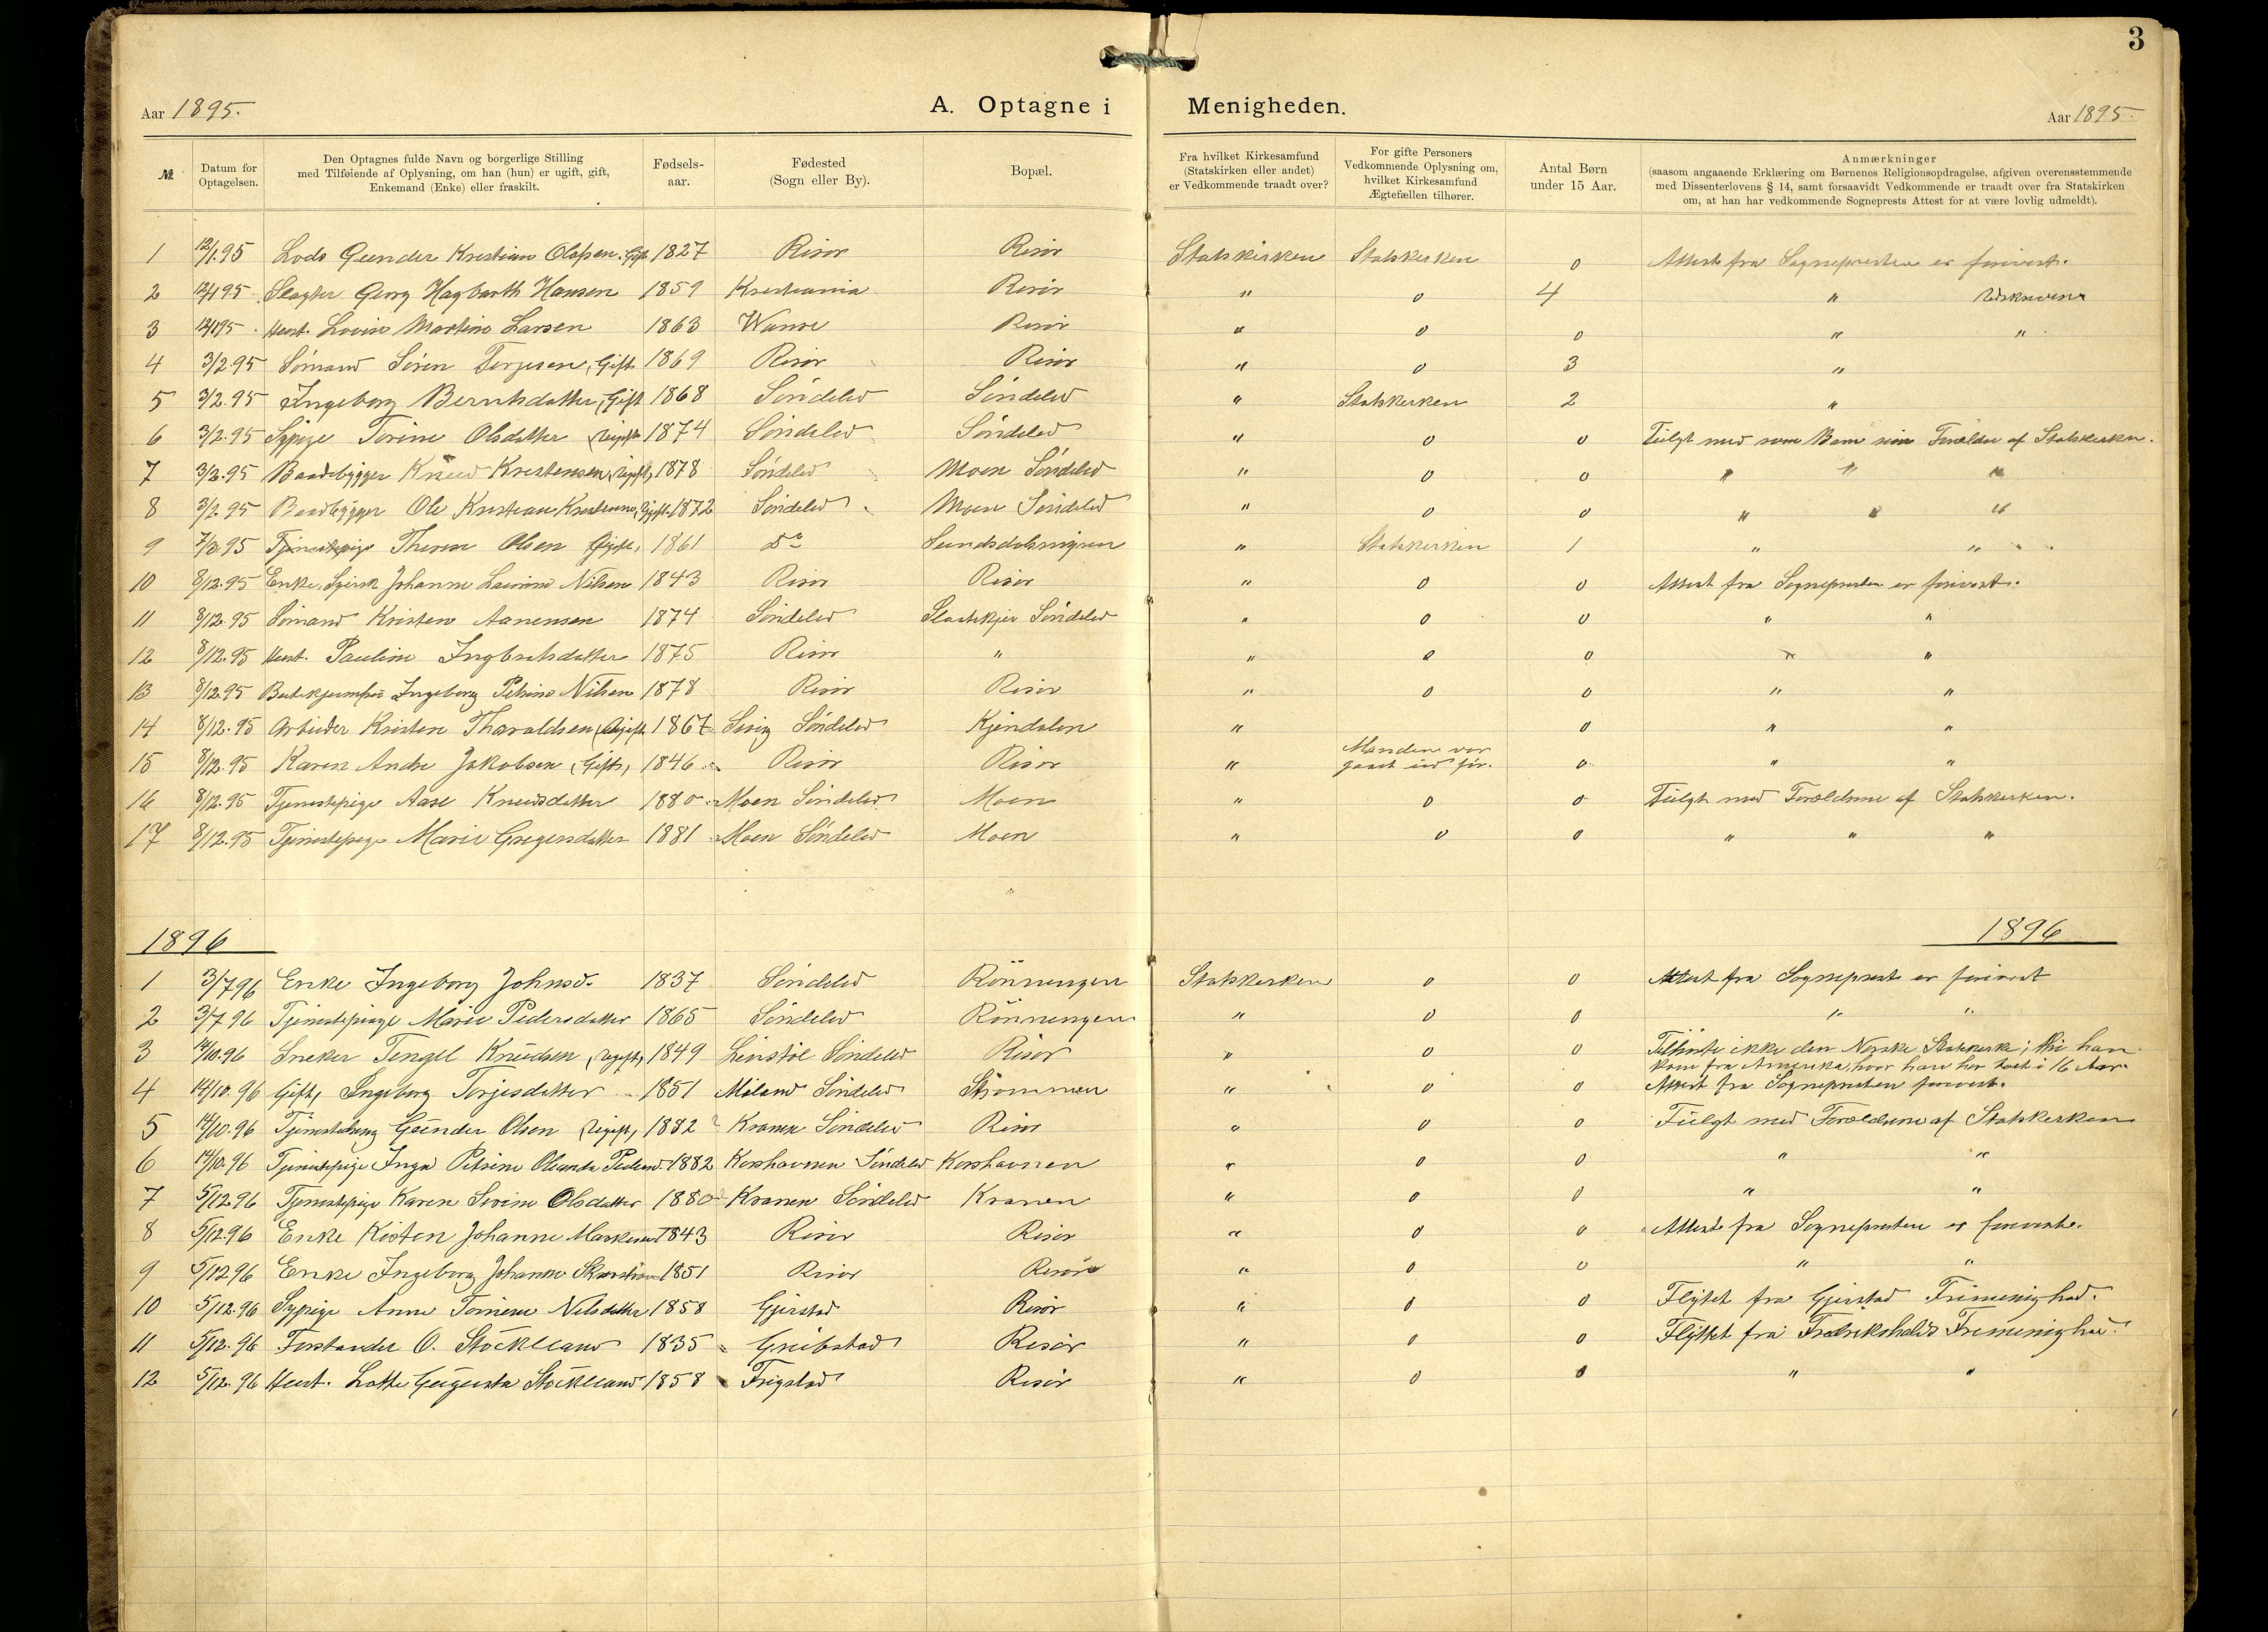 3
Aar 1895. A. Optagne i Menigheden. Aar 1895.
№ Datum for Optagelsen. Den Optagnes fulde Navn og borgerlige Stilling med Tilføiende af Oplysning, om han (hun) er ugift, gift, Enkemand (Enke) eller fraskilt. Fødsels-aar. Fødested (Sogn eller By). Bopæl. Fra hvilket Kirkesamfund (Statskirken eller andet) er Vedkommende traadt over? For gifte Personers Vedkommende Oplysning om, hvilket Kirkesamfund Ægtefællen tilhører. Antal Børn under 15 Aar. Anmærkninger (saasom angaaende Erklæring om Børnenes Religionsopdragelse, afgiven overensstemmende med Dissenterlovens § 14, samt forsaavidt Vedkommende er traadt over fra Statskirken om, at han har vedkommende Sogneprests Attest for at være lovlig udmeldt).
1 12/1.95 Lods Gunder Kristian Olafsen. Gift 1827 Risør Risør Statskirken Statskirken 0 Attest fra Sognepresten er forevist.
2 12/1 95 Slagter Georg Hagbarth Hansen 1859 Kristiania Risør " 0 4 "
3 12/1 95 Hust. Lovise Martine Larsen 1863 Risör " 0 0 " "
4 3/2.95 Sömand Sören Terjesen, Gift 1869 Risör Risör " 0 3 "
5 3/2.95 Ingeborg Berntsdatter, Gift 1868 Söndeled Söndeled " Statskirken 2 "
6 3/2.95 Sypige Torine Olsdatter, Ugift 1874 Söndeled Söndeled " 0 0 Fulgt med som Barn sine Forældre af Statskirken.
7 3/2.95 Baadebygger Knud Kristensen, Ugift, 1878 Söndeled Moen Söndeled " 0 0 " " "
8 3/2.95 Baadbygger Ole Kristian Kristensen, Ugift. 1872 Söndeled Moen Söndeled " 0 0 " " "
9 7/3.95 Tjenestepige Therese Olsen Gift, 1861 Do " Statskirken 1 " "
10 8/12.95 Enke, Johanne Lavine Nilsen 1843 Risör Risör " 0 0 Attest fra Sognepresten er forevist.
11 8/12.95 Sömand Kristen Aanensen 1874 Söndeled Söndeled " 0 0 " "
12 8/12.95 Hust. Pauline Ingbretsdatter 1875 Risör " " 0 0 " "
13 8/12.95 Ingeborg Petrine Nilsen 1878 Risör Risör " 0 0 " "
14 8/12.95 Arbeider Kristen Tharaldsen, Ugift 1867 Söndeled Kjendalen " 0 " "
15 8/12.95 Karen Andre Jakobsen, Gift, 1846 Risör Risör " Manden var gaaet ud för. 0 " "
16 8/12.95 Tjenestepige Aase Knudsdatter 1880 Moen Söndeled Moen " 0 0 Fulgt med Forældrene af Statskirken.
17 8/12.95 Tjenestepige Marie Gregersdatter 1881 Moen Söndeled Moen " 0 0 " " "
1896 1896
1 3/7 96 Enke Ingeborg Johnsd. 1837 Söndeled Rönningen Statskirken 0 0 Attest fra Sogneprest er forevist
2 3/7 96 Tjenestepige Marie Pedersdatter 1865 Söndeled Rönningen " 0 0 " "
3 14/10.96 Sneker Tengel Knudsen, Ugift, 1849 Söndeled Risör " 0 0 Tilhörte ikke den Norske Statskirke; thi han kom fra Amerika, hvor han har været i 16 Aar.
4 14/10.96 Gift, Ingeborg Terjesdatter 1851 Söndeled " 0 0 Attest fra Sognepresten forevist.
5 14/10.96 Gunder Olsen, Ugift, 1882 Kranen Söndeled Risör " 0 0 Fulgt med Forældrene af Statskirken
6 14/10.96 Tjenestepige Inga Petrine Pedersd. 1882 Korshavnen Söndeled Korshavnen " 0 0 " "
7 5/12.96 Tjenestepige Karen Sevine Olsdatter 1880 Kranen Söndeled Kranen " 0 0 " "
8 5/12.96 Enke Kisten Johanne Markusen 1843 Risör Risör " 0 0 Attest fra Sognepresten er forevist.
9 5/12.96 Enke Ingeborg Johanne 1851 Risör Risör " 0 0 " "
10 5/12.96 Sypige Anne Nilsdatter 1858 Gjerstad Risör " 0 0 Flyttet fra Gjerstad Frimenighed.
11 5/12.96 Forstander O. Stöckleand 1835 Risör " 0 0 Flyttet fra Fredrikshalds Frimenighed.
12 5/12.96 Hust. Lotte Gugusta Stöckleand 1858 Risör " 0 0 " "